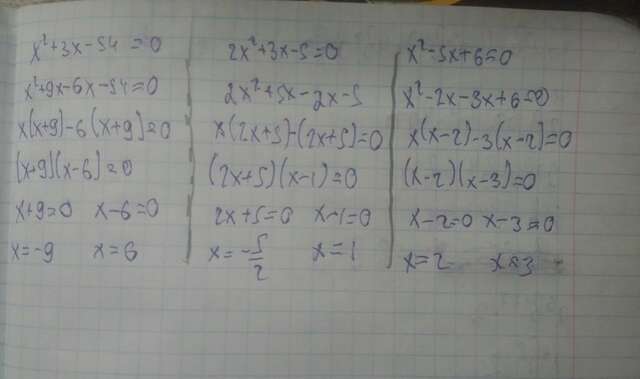 x²+3x-54=0
x²+9x-6x-54=0
x(x+9)-6(x+9)=0
(x+9)(x-6)=0
x+9=0 x-6=0
x=-9 x=6
2x²+3x-5=0
2x²+5x-2x-5
x(2x+5)-(2x+5)=0
(2x+5)(x-1)=0
2x+5=0 x-1=0
x=-5/2 x=1
x²-5x+6=0
x²-2x-3x+6=0
x(x-2)-3(x-2)=0
(x-2)(x-3)=0
x-2=0 x-3=0
x=2 x=3